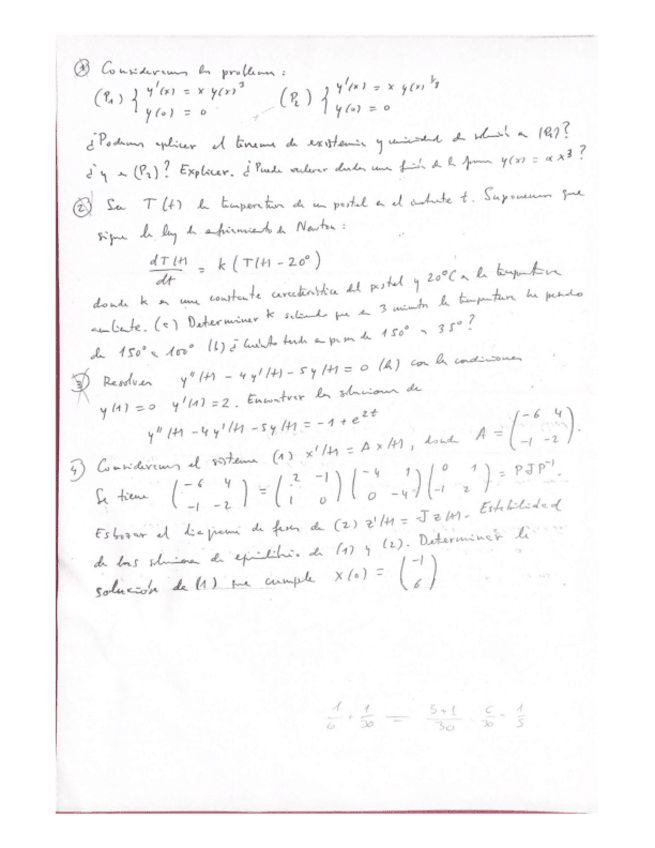 ① Consideremos los problemas:
(P₁) { y'(x) = x y(x)³ (P₂) { y'(x) = x y(x)^{1/3}
y(0) = 0 y(0) = 0
¿Podemos aplicar el teorema de existencia y unicidad de solución a (P₁)?
¿y a (P₂)? Explicar. ¿Puede valerse de la forma y(x) = αx³?
② Sea T(t) la temperatura de un pastel en el instante t. Suponemos que
sigue la ley de enfriamiento de Newton:
dT(t)/dt = k (T(t) - 20°)
donde k es una constante característica del pastel y 20°C es la temperatura
ambiente. (a) Determinar k sabiendo que en 3 minutos la temperatura ha pasado
de 150° a 100° (b) ¿Cuánto tarda en pasar de 150° a 35°?
③ Resolver y''(t) - 4y'(t) - 5y(t) = 0 (h) con las condiciones
y(1) = 0 y'(1) = 2. Encontrar las soluciones de
y''(t) - 4y'(t) - 5y(t) = -1 + e^{2t}
4) Consideremos el sistema (1) x'(t) = A x(t), donde A = (-6 4
-1 -2).
Se tiene (-6 4
-1 -2) = (2 -1
1 0) (-4 1
0 -4) (0 1
-1 2) = PJP⁻¹.
Esbozar el diagrama de fases de (2) z'(t) = J z(t). Estabilidad
de las soluciones de equilibrio de (1) y (2). Determinar la
solución de (1) que cumple x(0) = (-1
6)
1/6 + 1/30 = 5+1/30 6/30 = 1/5